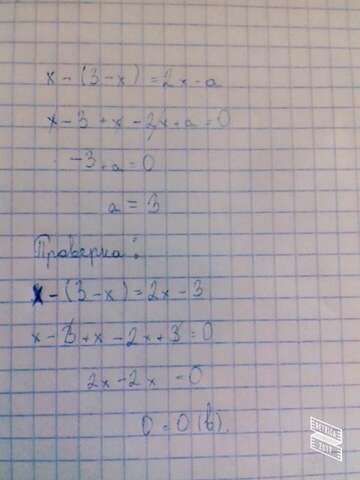 x - (3 - x) = 2x - a
x - 3 + x - 2x + a = 0
-3 + a = 0
a = 3
Проверка:
x - (3 - x) = 2x - 3
x - 3 + x - 2x + 3 = 0
2x - 2x = 0
0 = 0 (в).